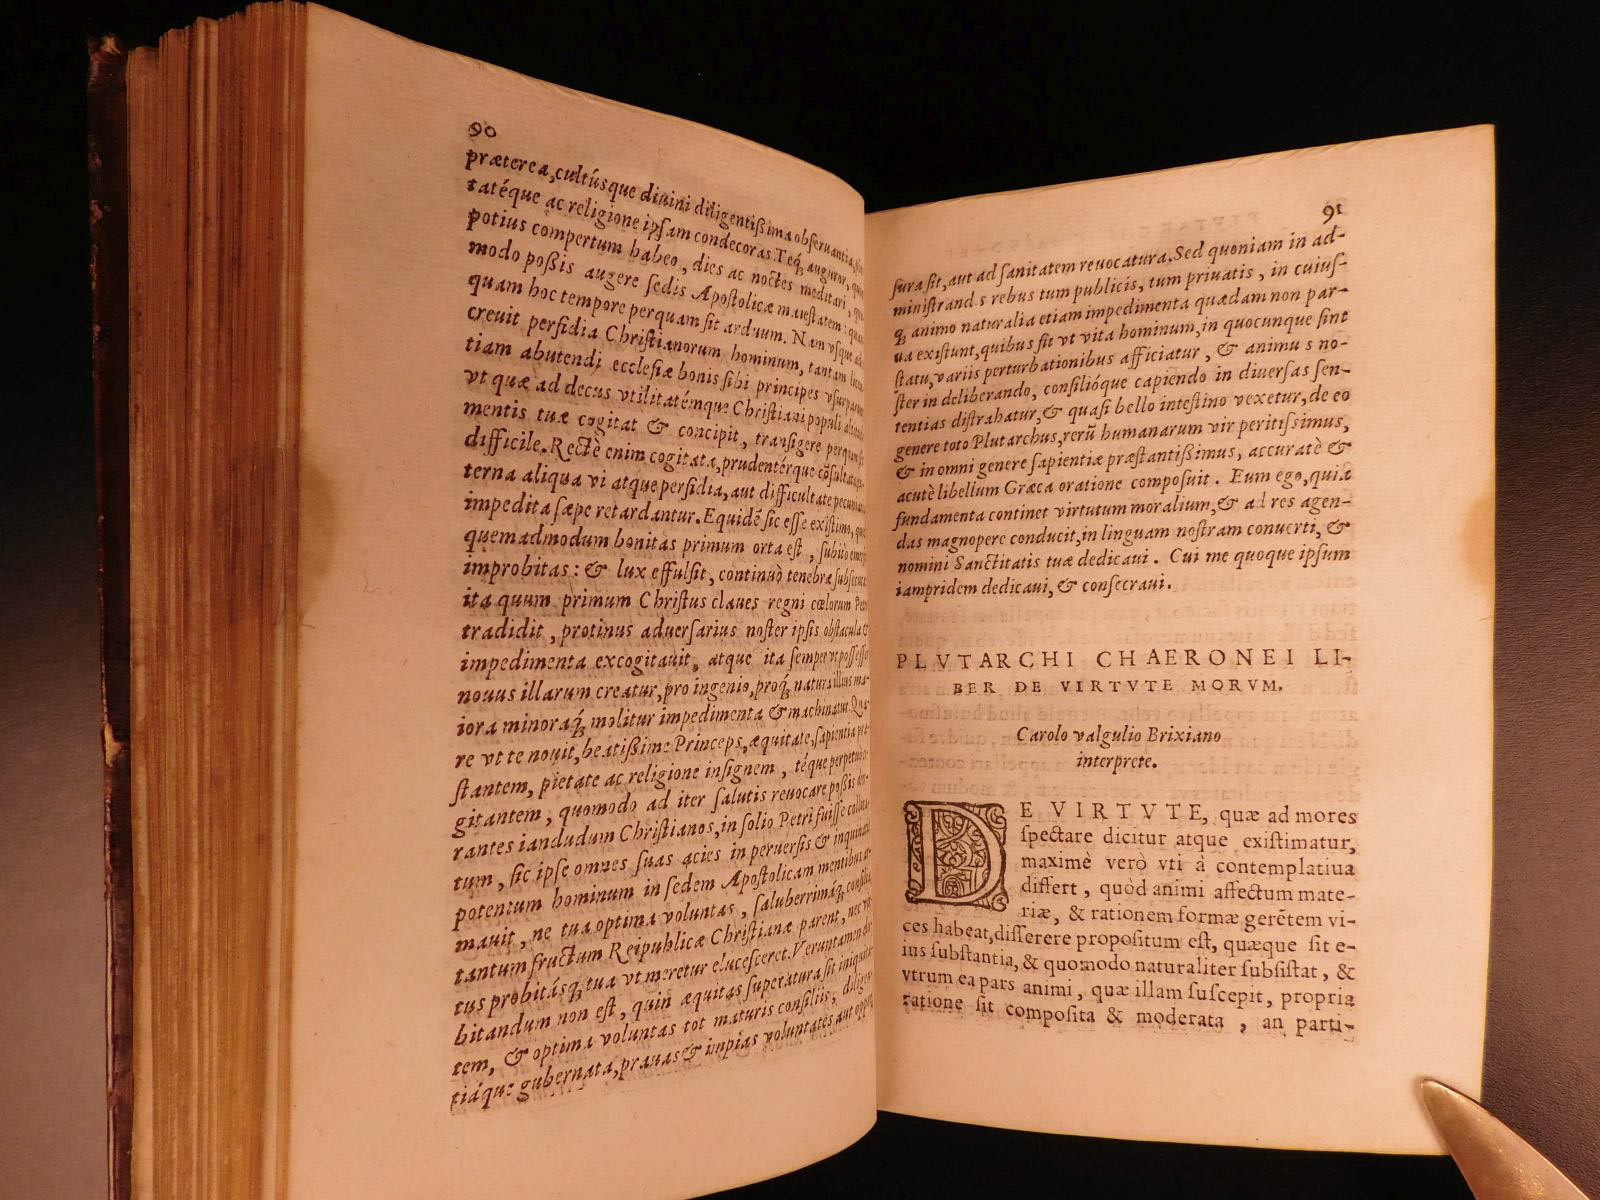 90
prætereа, cultúsque divini diligentißima observantia,
tatéque ac religione ipsam condecoras. Teq́; auguror,
potius compertum habeo, dies ac noctes meditari,
modo poßis augere sedis Apostolicæ maiestatem:
quam hoc tempore perquam sit arduum. Nam vsque
creuit perfidia Christianorum hominum, tantam
tiam abutendi ecclesiæ bonis sibi principes vsurparunt
vt quæ ad decus vtilitatémque Christiani populi
mentis tuæ cogitat & concipit, transigere
difficile. Rectè enim cogitata, prudentérque cõsultata,
terna aliqua vi atque perfidia, aut difficultate
impedita sæpe retardantur. Equidẽ sic esse existimo,
quemadmodum bonitas primum orta est, subito
improbitas: & lux effulsit, continuò tenebræ
ita quum primum Christus claues regni cœlorum
tradidit, protinus aduersarius noster ipsis obstacula &
impedimenta excogitauit, atque ita semper vt possessor
nouus illarum creatur, pro ingenio, proq́; natura illius ma-
iora minoraq́; molitur impedimenta & machinatur.
re vt te nouit, beatißime Princeps, æquitate, sapientia
stantem, pietate ac religione insignem, téque
gitantem, quomodo ad iter salutis reuocare poßis
rantes iandudum Christianos, in solio Petri fuisse
tum, sic ipse omnes suas acies in peruersis &
potentum hominum in sedem Apostolicam mentibus
mauit, ne tua optima voluntas, saluberrimáq́;
tantum fructum Reipublicæ Christianæ parent, nec
tus probitásq́; tua vt meretur elucesceret. Veruntamen
bitandum non est, quin æquitas superatura sit
tem, & optima voluntas tot maturis consiliis,
tiáque gubernata, prauas & impias voluntates aut
91
sura sit, aut ad sanitatem reuocatura. Sed quoniam in ad-
ministrand s rebus tum publicis, tum priuatis, in cuius-
q́; animo naturalia etiam impedimenta quædam non par-
ua existunt, quibus fit vt vita hominum, in quocunque sint
statu, variis perturbationibus afficiatur, & animu s no-
ster in deliberando, consilióque capiendo in diuersas sen-
tentias distrahatur, & quasi bello intestino vexetur, de eo
genere toto Plutarchus, rerũ humanarum vir peritissimus,
& in omni genere sapientiæ præstantißimus, accuratè &
acutè libellum Græca oratione composuit. Eum ego, quia
fundamenta continet virtutum moralium, & ad res agen-
das magnopere conducit, in linguam nostram conuerti, &
nomini Sanctitatis tuæ dedicaui. Cui me quoque ipsum
iampridem dedicaui, & consecraui.
PLVTARCHI CHAERONEI LI-
BER DE VIRTVTE MORVM.
Carolo valgulio Brixiano
interprete.
DE VIRTVTE, quæ ad mores
spectare dicitur atque existimatur,
maximè verò vti à contemplatiua
differt, quòd animi affectum mate-
riæ, & rationem formæ gerẽtem vi-
ces habeat, disserere propositum est, quæque sit e-
ius substantia, & quomodo naturaliter subsistat, &
vtrum ea pars animi, quæ illam suscepit, propria
ratione sit composita & moderata, an parti-